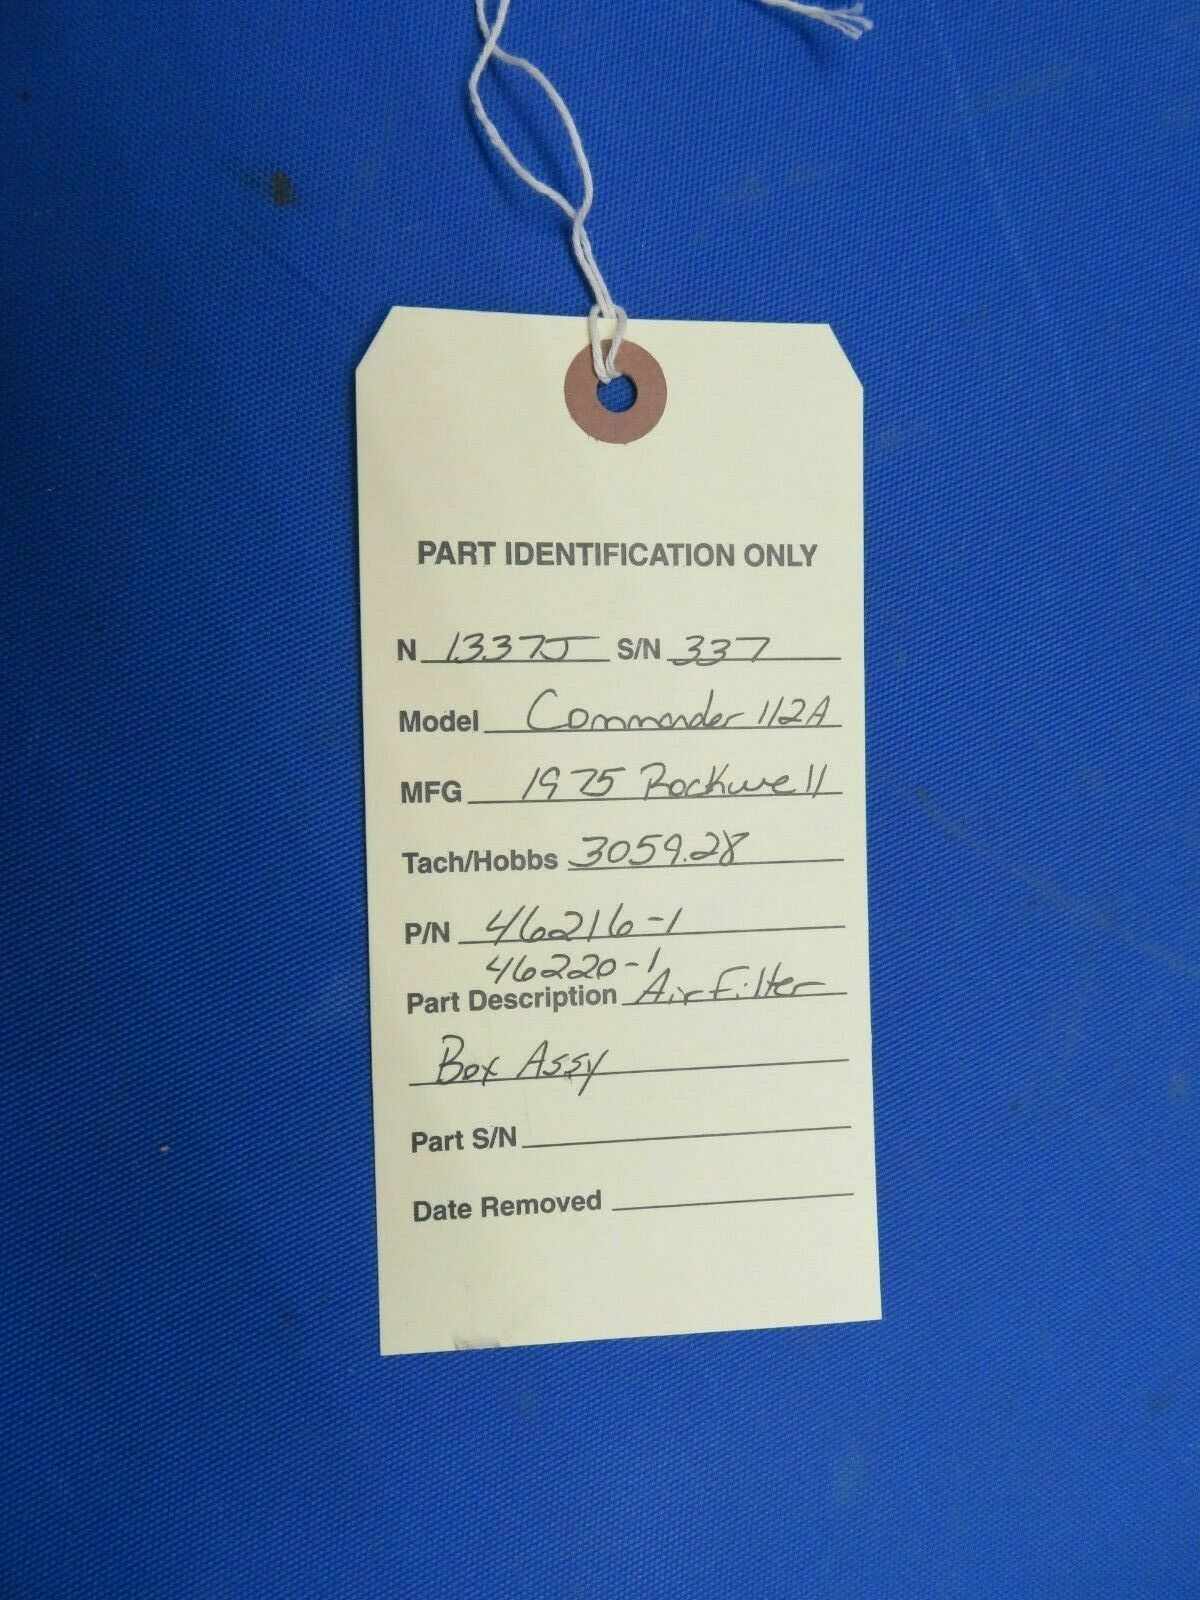 PART IDENTIFICATION ONLY
N 1337J S/N 337
Model Commander 112A
MFG 1975 Rockwell
Tach/Hobbs 3059.28
P/N 46216-1
46220-1
Part Description Air Filter
Box Assy
Part S/N
Date Removed